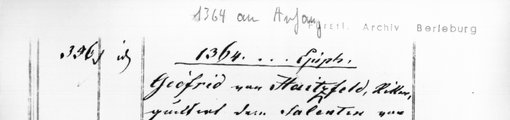 1364 an Anfang
Fürstl. Archiv Berleburg
336) id 1364. ... Epiph.
Gotfrid von Haitzfeld, Ritter,
quittirt dem Salentin von